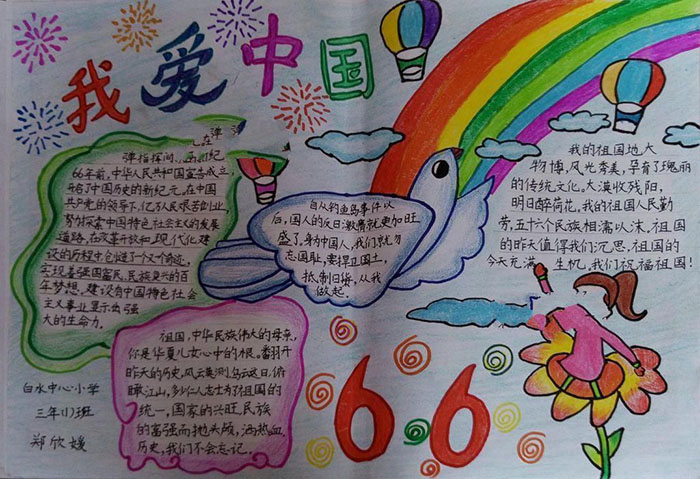 我爱中国
弹指挥间，
66年前，中华人民共和国宣告成立，
开启了中国历史的新纪元，在中国
共产党的领导下，亿万人民艰苦创业，
努力探索中国特色社会主义的发展
道路，在改革开放和现代化建
设的历程中创造了一个又一个奇迹，
实现着强国富民、民族复兴的百
年梦想，建设有中国特色社会
主义事业显示出强
大的生命力。
自从钓鱼岛事件以
后，国人的反日激情就更加旺
盛了，身为中国人，我们就勿
忘国耻，要捍卫国土，
抵制日货，从我
做起。
我的祖国地大
物博，风光秀美，孕育了瑰丽
的传统文化。大漠收残阳，
明日醉荷花，我的祖国人民勤
劳，五十六个民族相濡以沫。祖国
的昨天值得我们沉思，祖国的
今天充满生机，我们祝福祖国！
祖国，中华民族伟大的母亲，
你是华夏儿女心中的根。翻开
昨天的历史，风云莫测，
瞰江山，多少仁人志士为了祖国的
统一，国家的兴旺，民族
的富强而抛头颅，洒热血，
历史，我们不会忘记。
白水中心小学
三年(1)班
郑欣媛
6.6